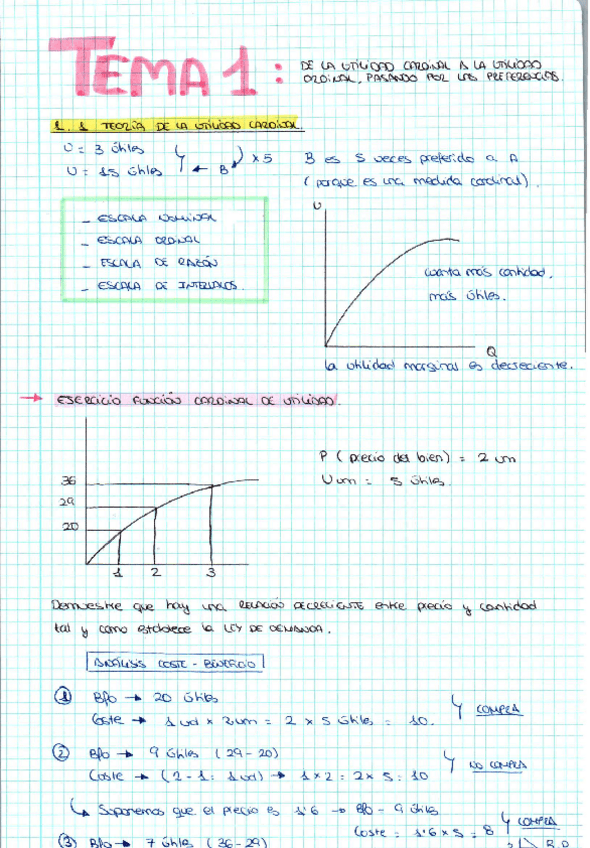 TEMA 1: DE LA UTILIDAD CARDINAL A LA UTILIDAD
ORDINAL, PASANDO POR LAS PREFERENCIAS.
1.1 TEORÍA DE LA UTILIDAD CARDINAL.
U = 3 útiles
U = 15 útiles ← B x5
B es 5 veces preferido a A
(porque es una medida cardinal).
- ESCALA NOMINAL
- ESCALA ORDINAL
- ESCALA DE RAZÓN
- ESCALA DE INTERVALOS.
U
cuanta más cantidad,
más útiles.
Q
la utilidad marginal es decreciente.
→ EJERCICIO FUNCIÓN CARDINAL DE UTILIDAD.
P (precio del bien) = 2 um
Uum = 5 útiles.
36
29
20
1 2 3
Demuestre que hay una RELACIÓN DECRECIENTE entre precio y cantidad
tal y como establece la LEY DE DEMANDA.
ANÁLISIS COSTE - BENEFICIO
① Bfo → 20 útiles
Coste → 1 ud x 2um = 2 x 5 útiles = 10.
COMPRA
② Bfo → 9 útiles (29-20)
Coste → (2-1 = 1ud) → 1x2 = 2x5 = 10
NO COMPRA
Suponemos que el precio es 1'6 → Bfo - 9 útiles
Coste = 1'6 x 5 = 8
COMPRA
③ Bfo → 7 útiles (36-29)